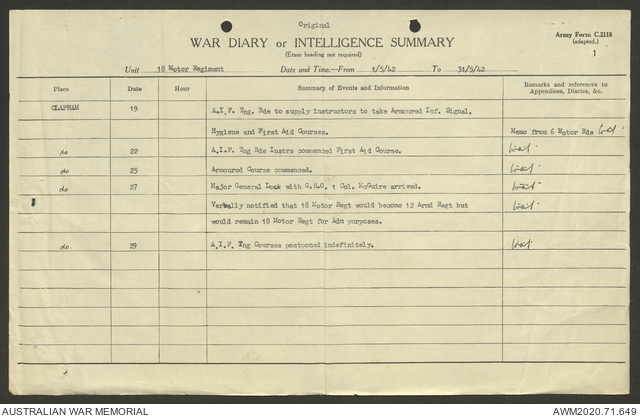 Original
Army Form C.2118
(adapted.)
WAR DIARY or INTELLIGENCE SUMMARY
(Erase heading not required)
1
Unit 18 Motor Regiment Date and Time.—From 1/5/42 To 31/5/42
Place Date Hour Summary of Events and Information Remarks and references to Appendices, Diaries, &c.
CLAPHAM 19 A.I.F. Tng. Bde to supply instructors to take Armoured Inf. Signal,
Hygiene and First Aid Courses. Memo from 6 Motor Bde
do 22 A.I.F. Tng Bde Instrs commenced First Aid Course.
do 25 Armoured Course commenced.
do 27 Major General Lock with G.S.O. 1 Col. McGuire arrived.
Verbally notified that 18 Motor Regt would become 12 Armd Regt but
would remain 18 Motor Regt for Adm purposes.
do 29 A.I.F. Tng Courses postponed indefinitely.
AUSTRALIAN WAR MEMORIAL AWM2020.71.649